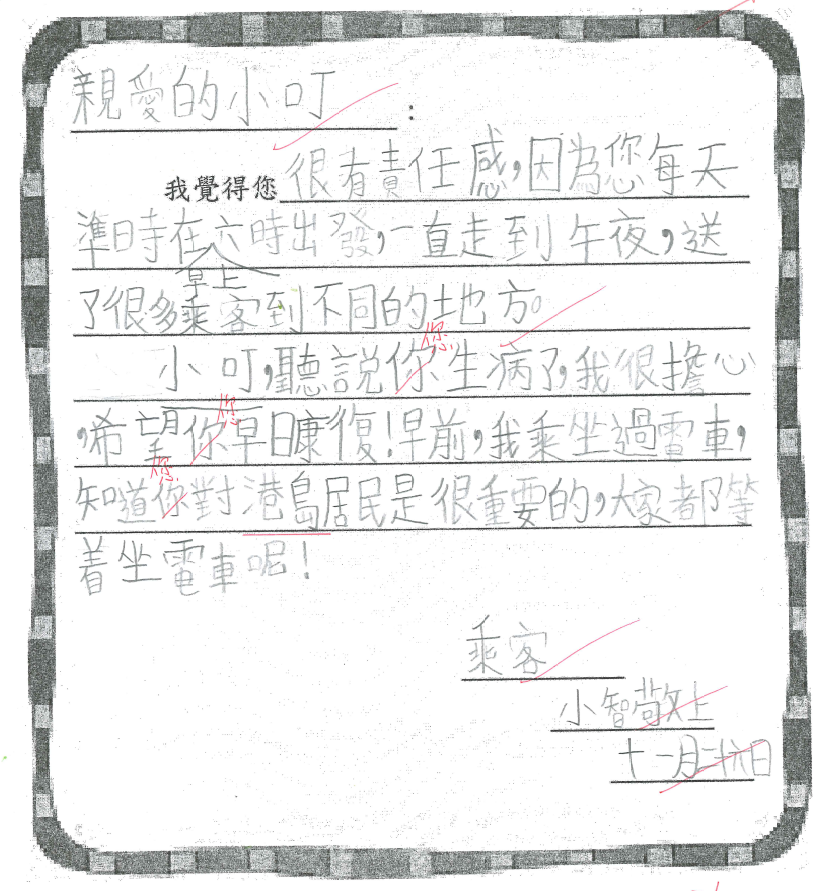 親愛的小叮：
我覺得您很有責任感，因為您每天
準時在早上六時出發，一直走到午夜，送
了很多乘客到不同的地方。
小叮，聽說你您生病了，我很擔心
，希望你您早日康復！早前，我乘坐過電車，
知道你您對港島居民是很重要的，大家都等
着坐電車呢！
乘客
小智敬上
十一月二十六日